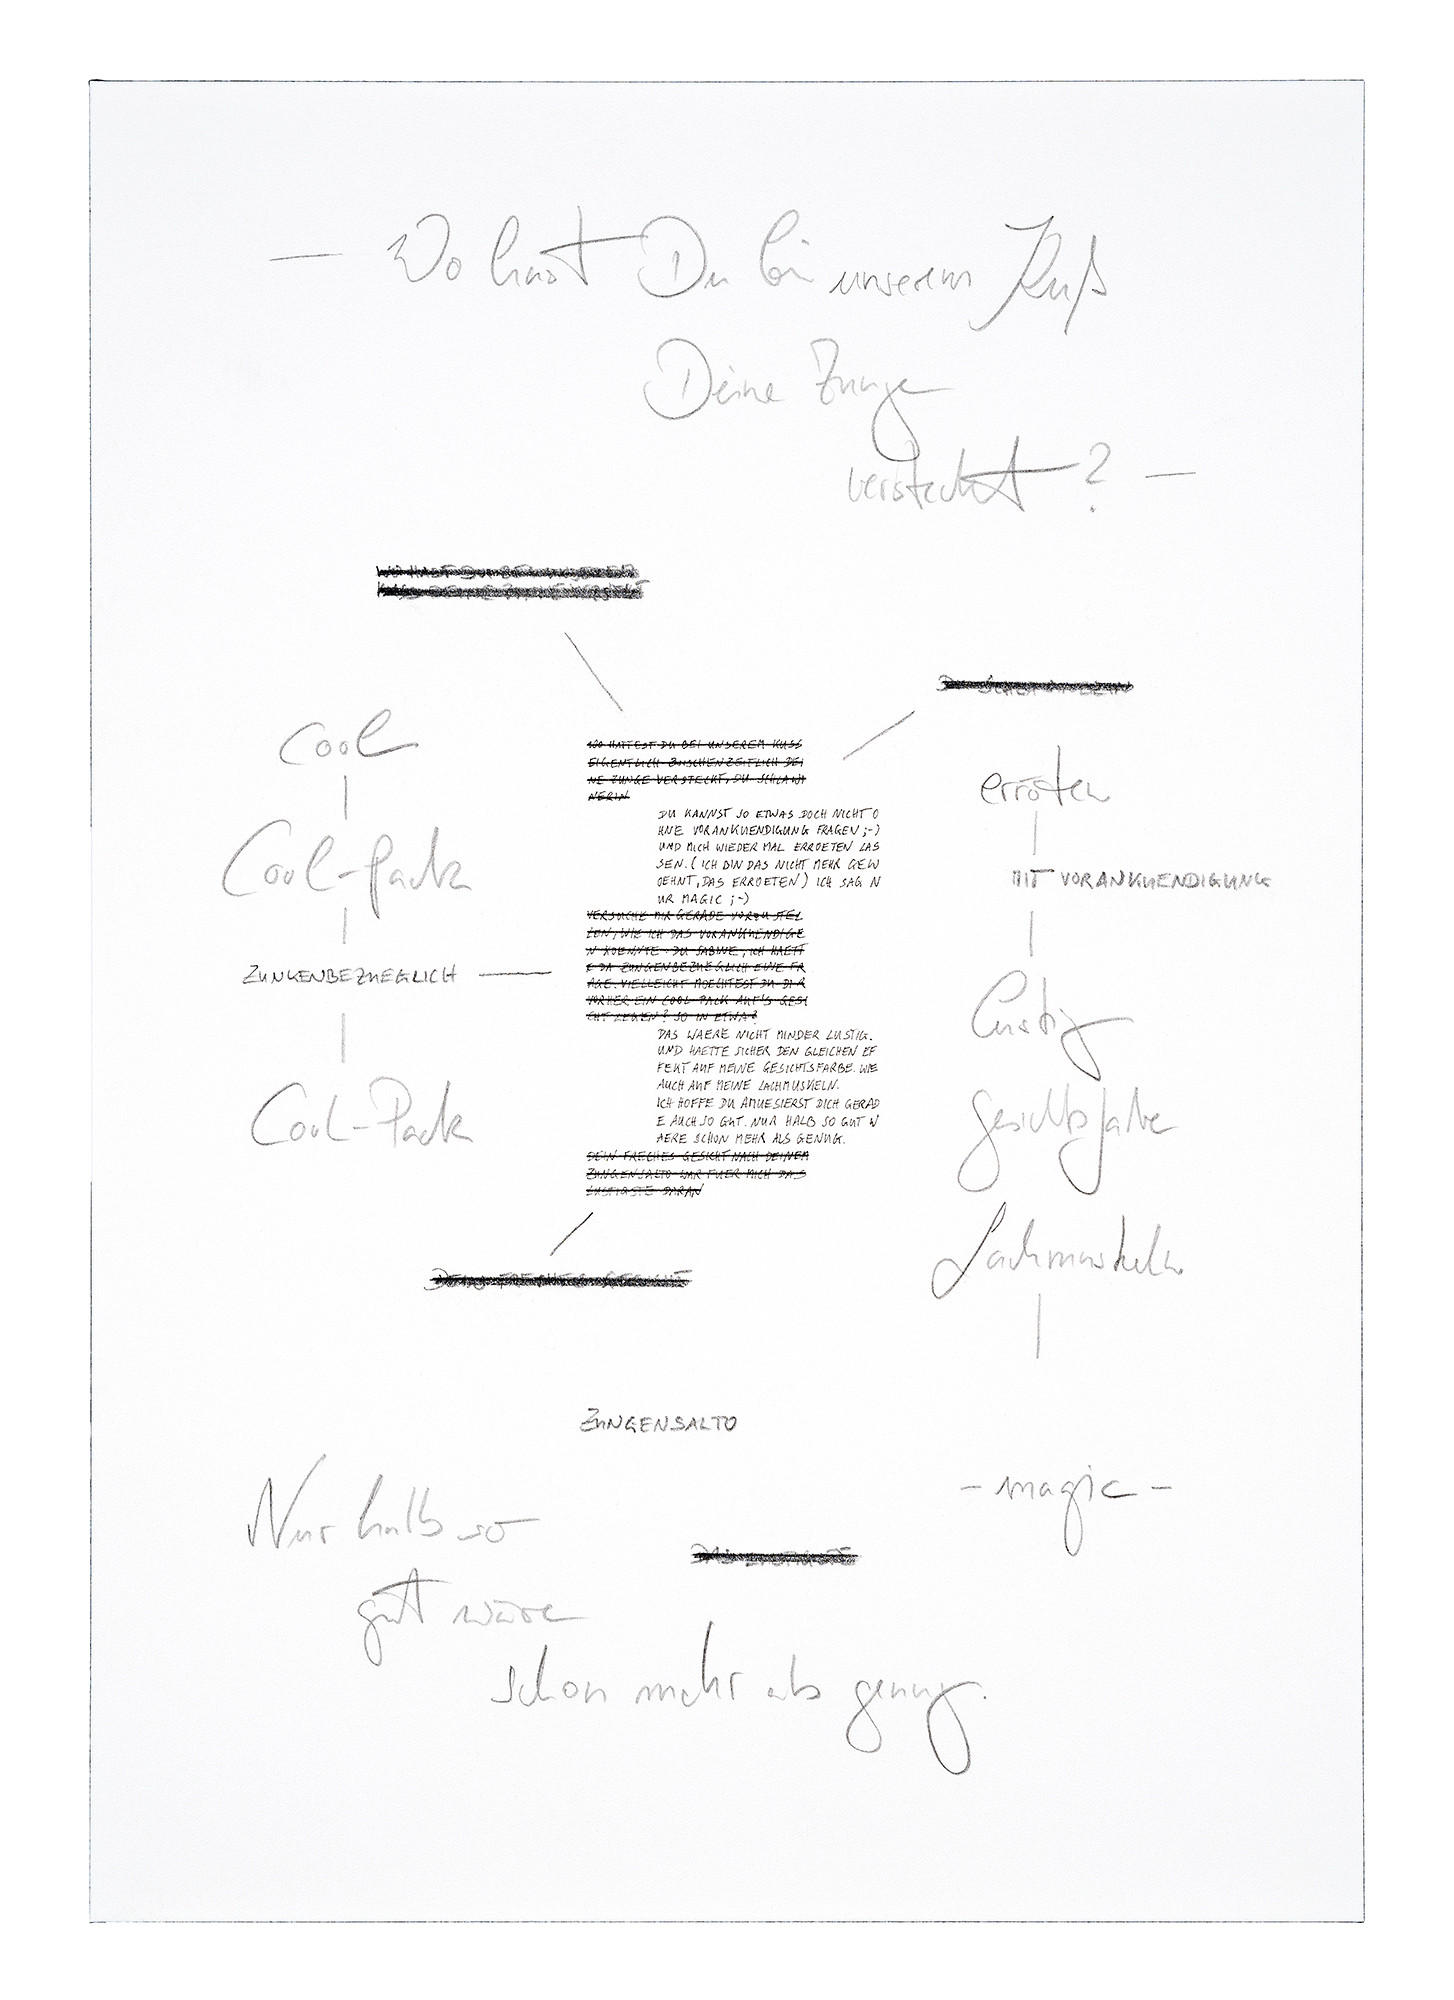 — Wo hast Du bei unserem Kuß
Deine Zunge
versteckt? —
WO HAST DU BEI UNSEREM
KUSS DEINE ZUNGE VERSTEKT
cool
Cool-Pack
ZUNGENBEZUEGLICH
Cool-Pack
WO HATTEST DU BEI UNSEREM KUSS
EIGENTLICH ZWISCHENZEITLICH DEI
NE ZUNGE VERSTECKT, DU SCHLAWI
NERIN
DU KANNST SO ETWAS DOCH NICHT O
HNE VORANKUENDIGUNG FRAGEN ;-)
UND MICH WIEDER MAL ERROETEN LAS
SEN. (ICH BIN DAS NICHT MEHR GEW
OEHNT, DAS ERROETEN) ICH SAG N
UR MAGIC ;-)
VERSUCHE MIR GERADE VORZUSTEL
LEN, WIE ICH DAS VORANKUENDIGE
N KOENNTE. DU SABINE, ICH HAETT
E DA ZUNGENBEZUEGLICH EINE FR
AGE. VIELLEICHT MOECHTEST DU DIR
VORHER EIN COOL PACK AUF'S GESI
CHT LEGEN? SO IN ETWA?
DAS WAERE NICHT MINDER LUSTIG.
UND HAETTE SICHER DEN GLEICHEN EF
FEKT AUF MEINE GESICHTSFARBE. WIE
AUCH AUF MEINE LACHMUSKELN.
ICH HOFFE DU AMUESIERST DICH GERAD
E AUCH SO GUT. NUR HALB SO GUT W
AERE SCHON MEHR ALS GENUG.
DEIN FRECHES GESICHT NACH DEINEM
ZUNGENSALTO WAR FUER MICH DAS
LUSTIGSTE DARAN
erröten
MIT VORANKUENDIGUNG
lustig
Gesichtsfarbe
Lachmuskeln
DEIN FRECHES GESICHT
ZUNGENSALTO
— magic —
DAS LUSTIGSTE
Nur halb so
gut wäre
schon mehr als genug.